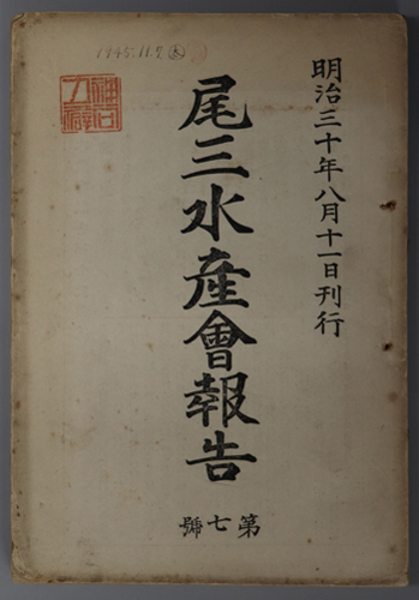 1945.11.7
明治三十年八月十一日刊行
尾三水産會報告
第七號